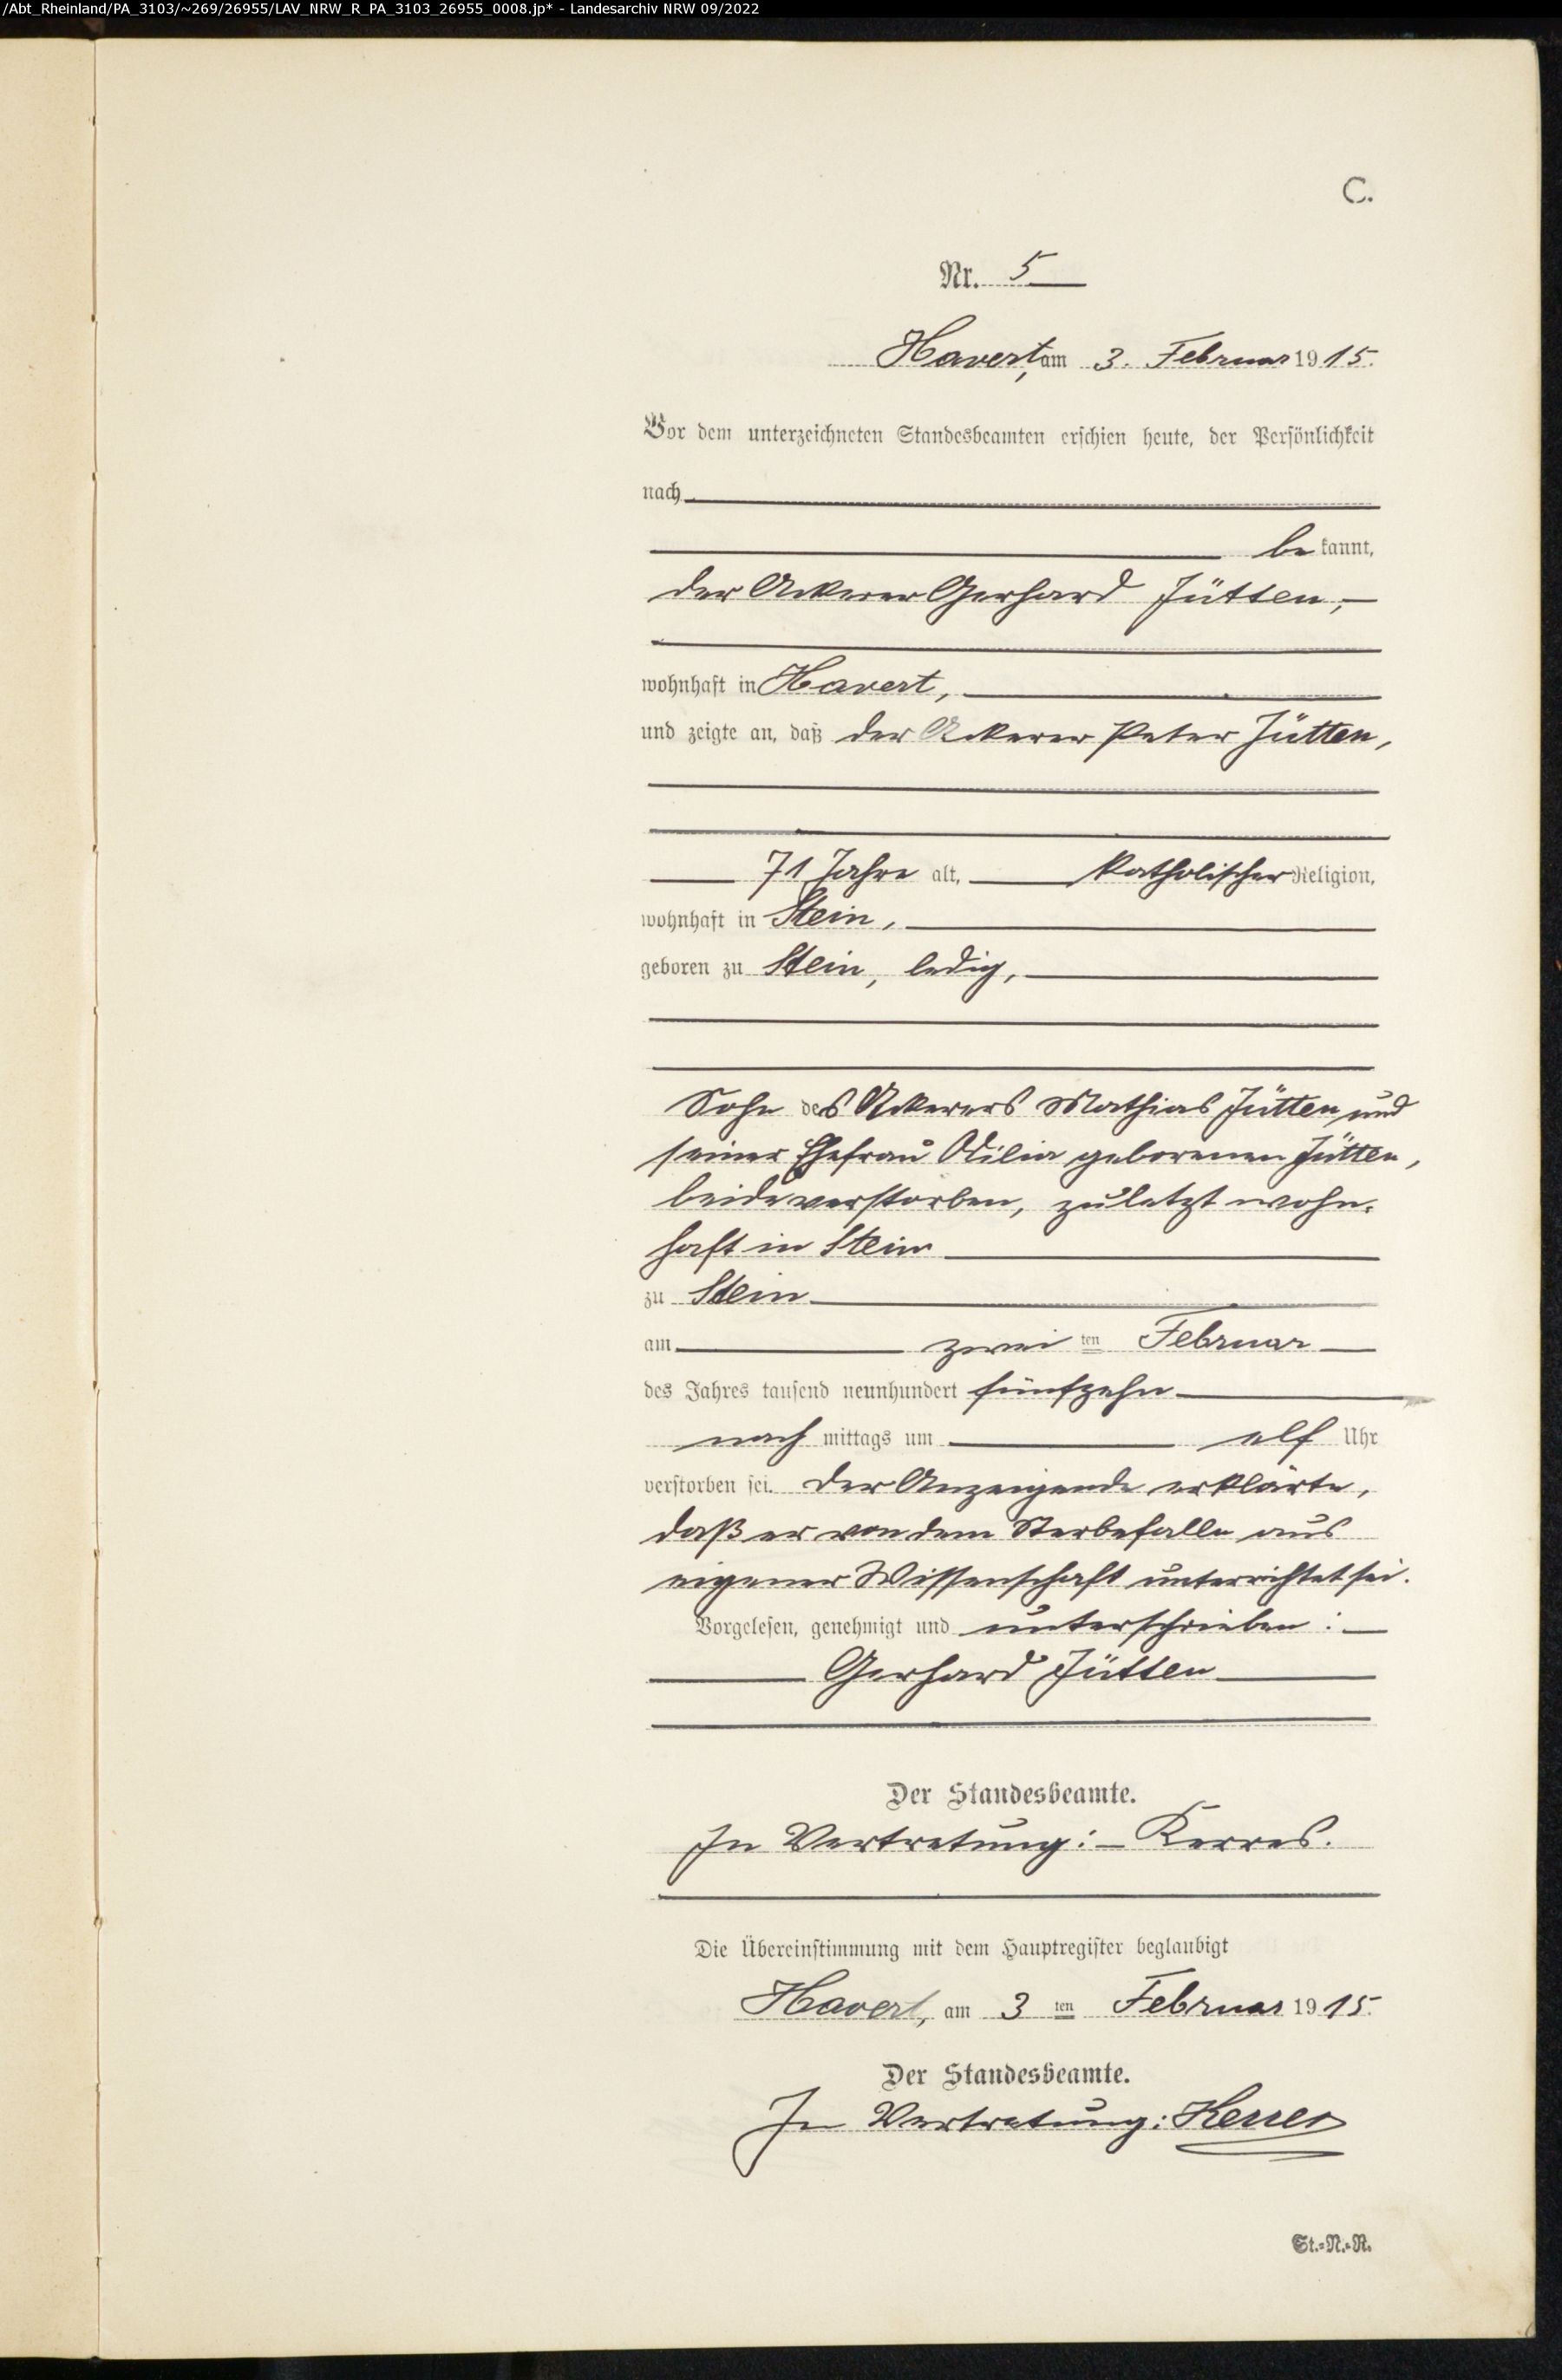 /Abt_Rheinland/PA_3103/~269/26955/LAV_NRW_R_PA_3103_26955_0008.jp* - Landesarchiv NRW 09/2022
C.
Nr. 5
Havert, am 3. Februar 1915.
Vor dem unterzeichneten Standesbeamten erschien heute, der Persönlichkeit
nach
be kannt,
der Ackerer Gerhard Jütten,
wohnhaft in Havert,
und zeigte an, daß der Ackerer Peter Jütten,
71 Jahre alt, katholischer Religion,
wohnhaft in Stein,
geboren zu Stein, ledig,
Sohn des Ackerers Mathias Jütten und
seiner Ehefrau Odilia geborenen Jütten,
beide verstorben, zuletzt wohn-
haft in Stein
zu Stein
am zwei ten Februar
des Jahres tausend neunhundert fünfzehn
nach mittags um elf Uhr
verstorben sei. Der Anzeigende erklärte,
daß er von dem Sterbefalle aus
eigener Wissenschaft unterrichtet sei.
Vorgelesen, genehmigt und unterschrieben:
Gerhard Jütten
Der Standesbeamte.
In Vertretung: Kerres.
Die Übereinstimmung mit dem Hauptregister beglaubigt
Havert, am 3 ten Februar 1915.
Der Standesbeamte.
In Vertretung: Kerres
St.-N.-R.